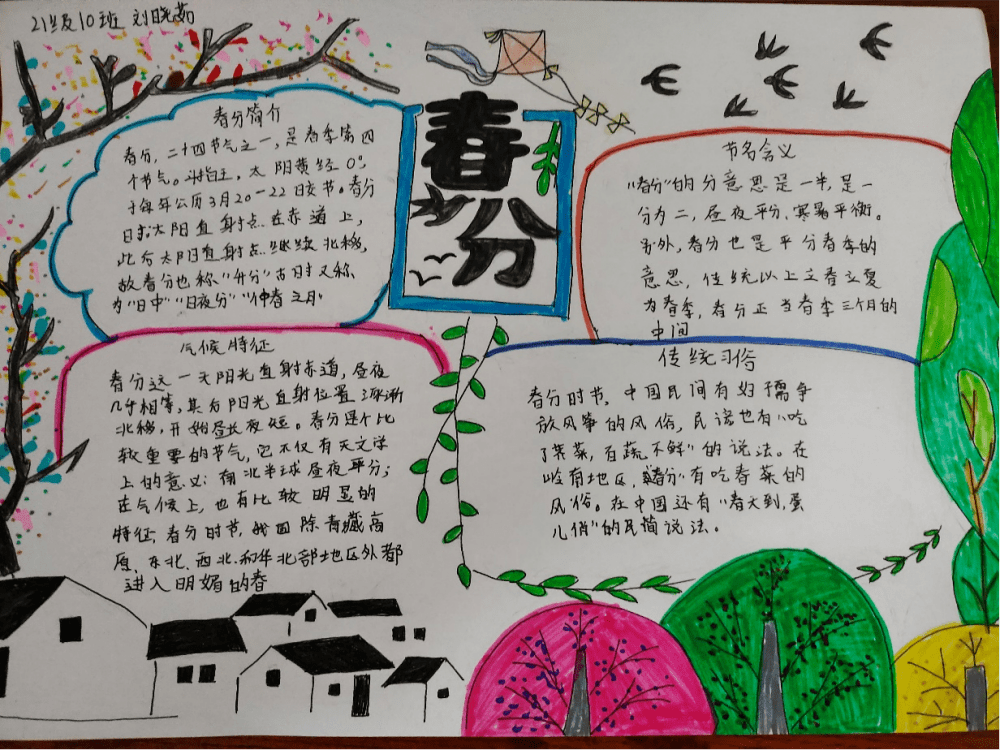 21级10班 刘晓茹
春分
春分简介
春分，二十四节气之一，是春季第四
个节气。斗指壬，太阳黄经0°，
于每年公历3月20－22日交节。春分
日时，太阳直射点在赤道上，
此后太阳直射点继续北移，
故春分也称“升分”古时又称
为“日中”“日夜分”“仲春之月”
节名含义
“春分”的分意思是一半，是一
分为二，昼夜平分、寒暑平衡。
另外，春分也是平分春季的
意思，传统以上立春立夏
为春季，春分正当春季三个月的
中间
气候特征
春分这一天阳光直射赤道，昼夜
几乎相等，其后阳光直射位置逐渐
北移，开始昼长夜短。春分是个比
较重要的节气，它不仅有天文学
上的意义：南北半球昼夜平分；
在气候上，也有比较明显的
特征，春分时节，我国除青藏高
原、东北、西北和华北部地区外都
进入明媚的春
传统习俗
春分时节，中国民间有好争
放风筝的风俗，民谚也有“吃
了菜，百蔬不鲜”的说法。在
岭有地区，“春分”有吃春菜的
风俗。在中国还有“春天到，蛋
儿俏”的民简说法。